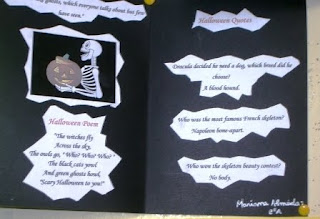 ghosts, which everyone talks about but few
have seen."
Halloween Poem
"The witches fly
Across the sky,
The owls go, "Who? Who? Who?"
The black cats yowl
And green ghosts howl,
"Scary Halloween to you!"
Halloween Quotes
Dracula decided he need a dog, which breed did he
choose?
A blood hound.
Who was the most famous French skeleton?
Napoleon bone-apart.
Who won the skeleton beauty contest?
No body.
Mariana Almeida